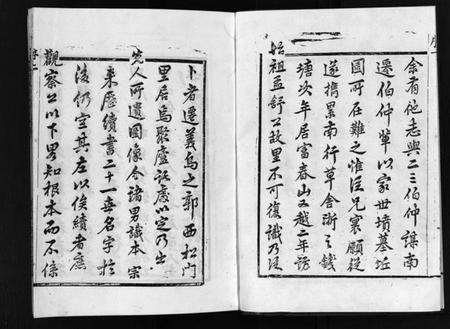 余有他志與二三伯仲謀南
遷伯仲輩以家世墳墓丘
園所在難之惟汪兄寰顧從
遂携累南行草舍浙之錢
塘次年居富春山又越二年訪
始祖孟舒公故里不可復識乃徑
卜者遷義烏之郭西松門
里居焉聚廬託處以定乃出
先人所遺圖像令諸男識本宗
來歷續書二十一世名字於
後仍空其左以俟續者庶
觀察公以下男知根本而不係
序
序二